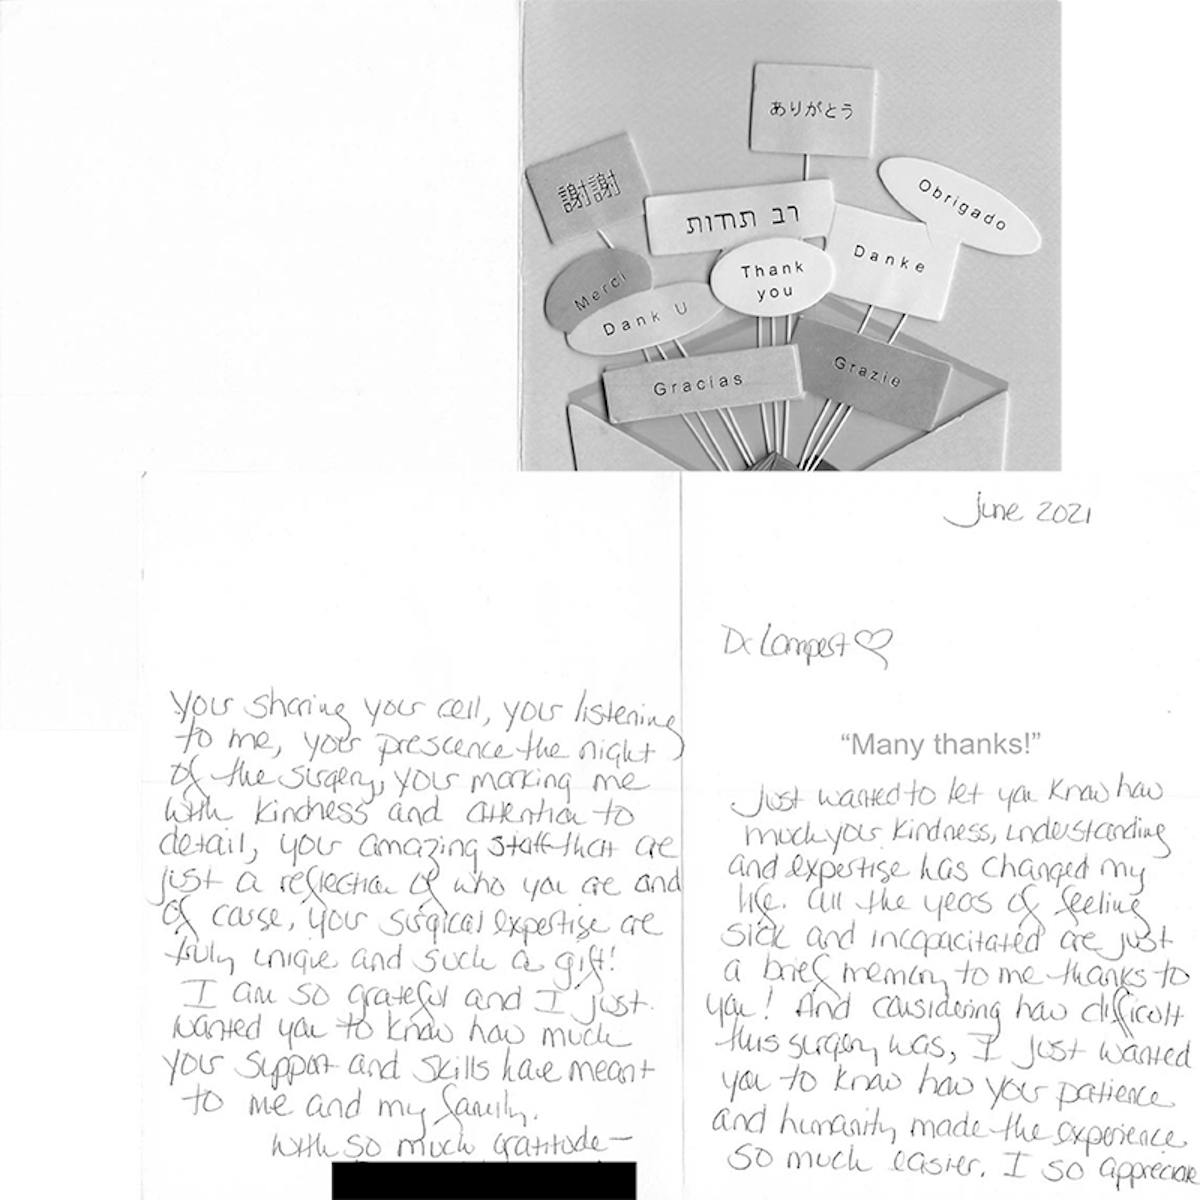 ありがとう
謝謝
Obrigado
רב תודות
Danke
Thank
you
Merci
Dank U
Grazie
Gracias
June 2021
Dr Lampert ♡
“Many thanks!”
Just wanted to let you know how
much your kindness, understanding
and expertise has changed my
life. All the years of feeling
sick and incapacitated are just
a brief memory to me thanks to
you! And considering how difficult
this surgery was, I just wanted
you to know how your patience
and humanity made the experience
so much easier. I so appreciate
your sharing your cell, your listening
to me, your prescence the night
of the surgery, your marking me
with kindness and attention to
detail, your amazing staff that are
just a reflection of who you are and
of course, your surgical expertise are
truly unique and such a gift!
I am so grateful and I just
wanted you to know how much
your support and skills have meant
to me and my family.
With so much gratitude—